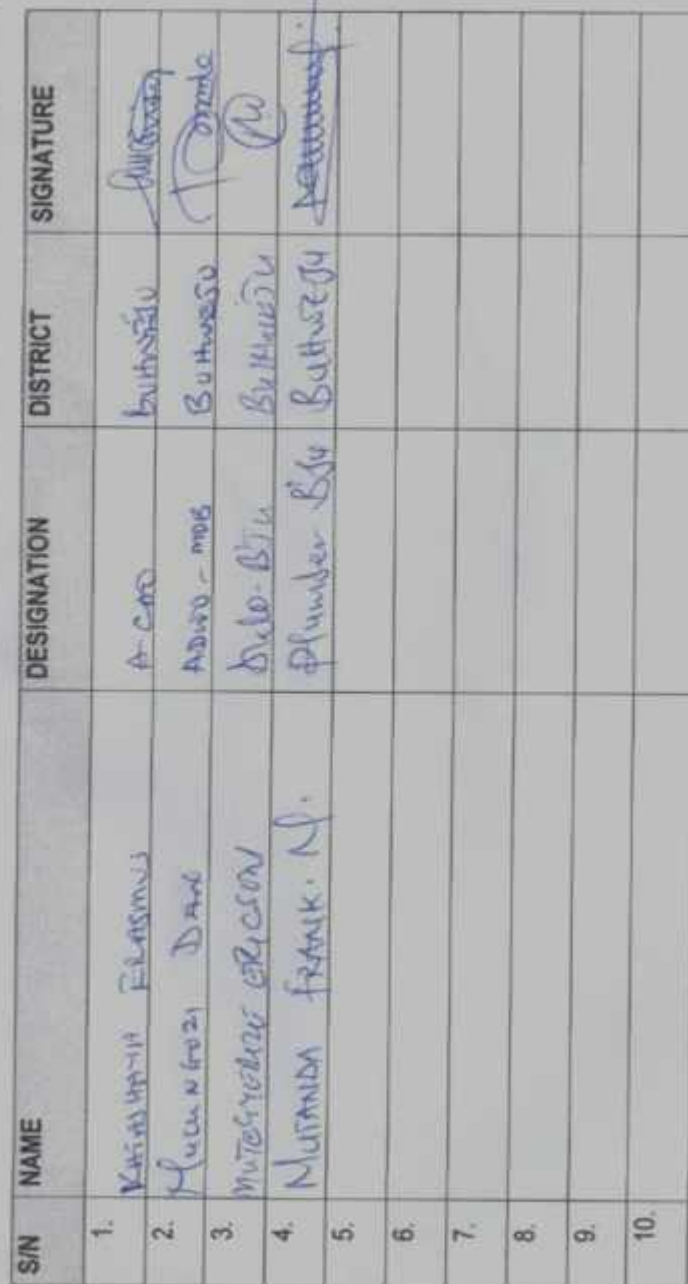 S/N NAME DESIGNATION DISTRICT SIGNATURE
1. ERASMUS A-CAO BUHWEJU
2. MUCUNGUZI DAN ADWO - MOB BUHWEJU
3. ERICSON BUHWEJU
4. MUTANDA FRANK. M. Plumber BJu BUHWEJU
5.
6.
7.
8.
9.
10.